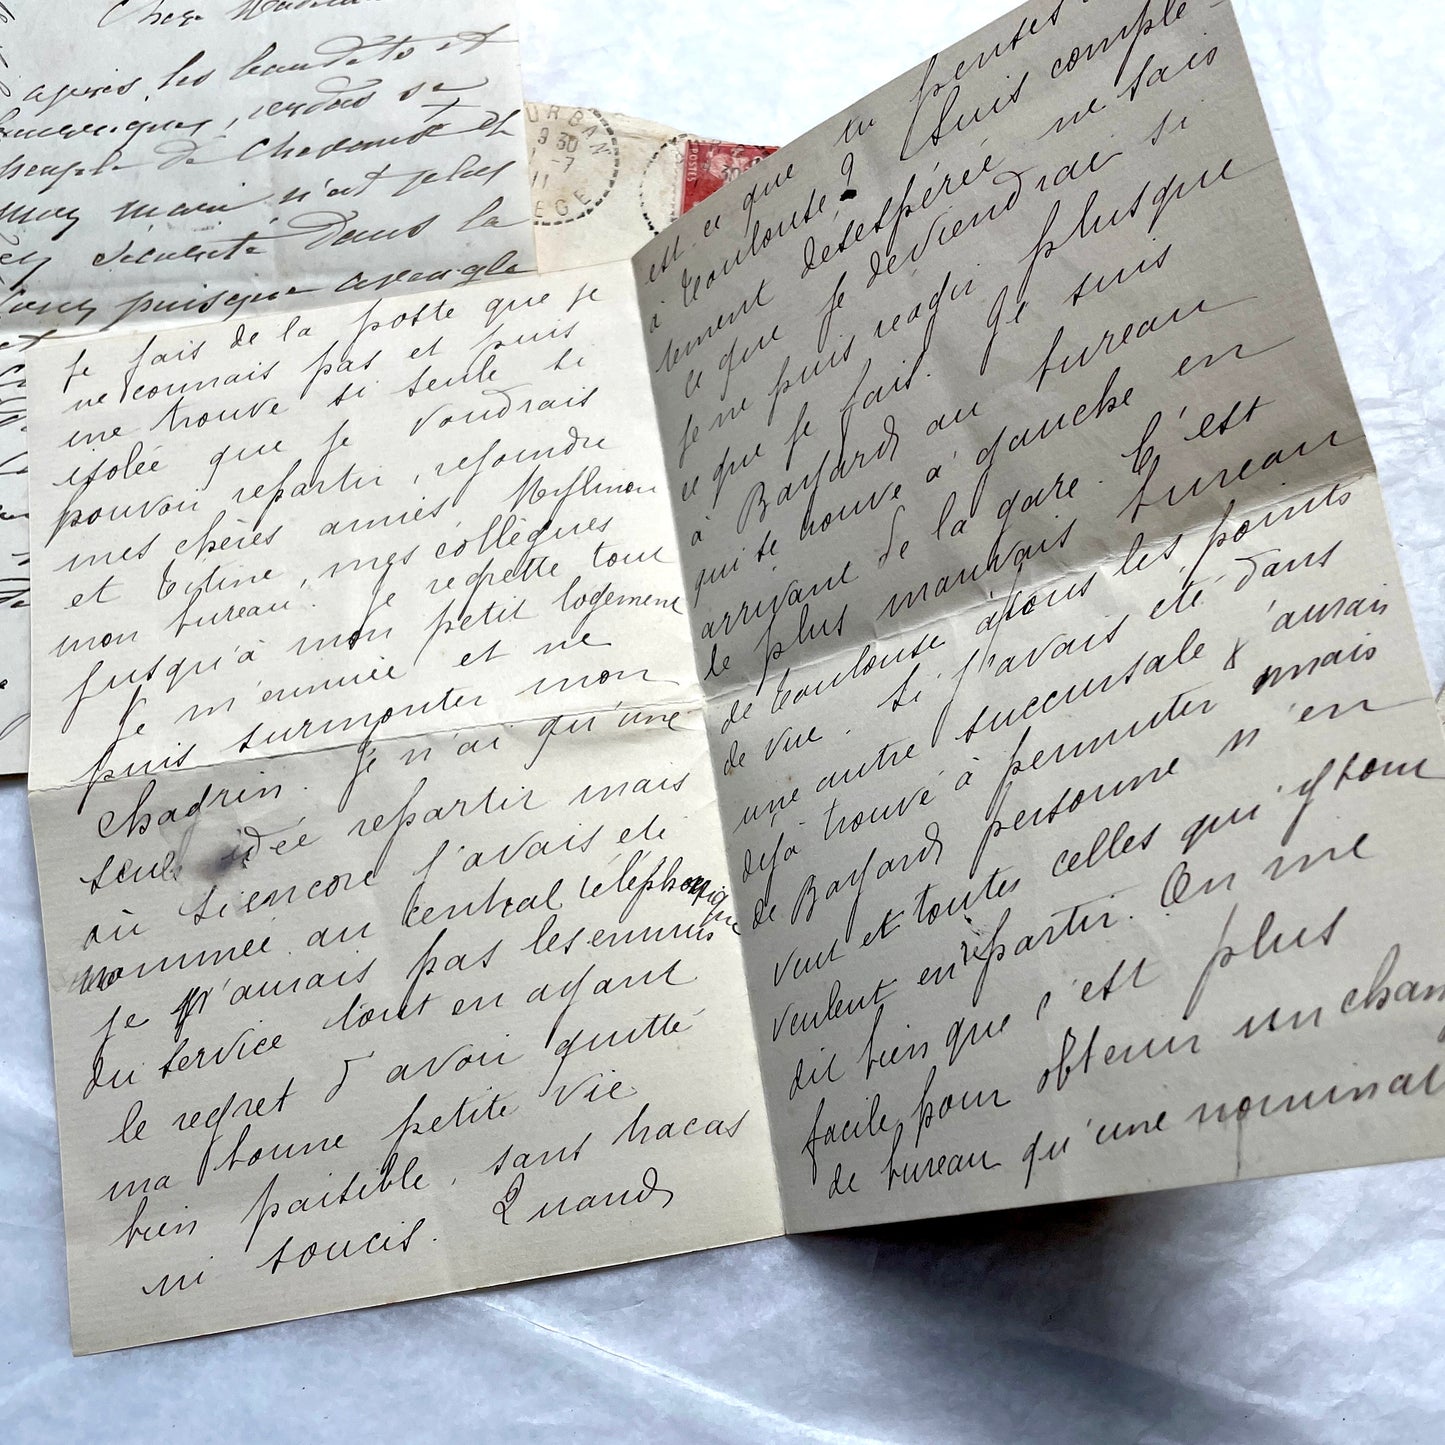 Chère
après les
n'est plus
sécurité Dans la
puisque aveugle
URBAN
9 30
7
11
EGE
POSTES
30
je fais de la poste que je
ne connais pas et puis
me trouve si seule si
isolée que je voudrais
pouvoir repartir, rejoindre
mes chères amies
et Titine, mes collègues
mon bureau. Je regrette tout
jusqu'à mon petit logement
Je m'ennuie et ne
puis surmonter mon
chadrin. Je n'ai qu'une
seule idée repartir mais
où si encore j'avais eté
nommée au central téléphonique
je n'aurais pas les ennuis
du service tout en ayant
le regret d'avoir quitté
ma bonne petite vie
bien paisible, sans tracas
ni soucis. Quand
est ce que tu penses
à Toulouse? Suis complè-
tement désespérée ne sais
ce que je deviendrai si
je ne puis réagir plusque
ce que je fais. Je suis
à Bayard au bureau
qui se trouve à gauche en
arrivant de la gare. C'est
le plus mauvais bureau
de Toulouse àtous les points
de vue. Si j'avais eté dans
une autre succursale j'aurais
déjà trouvé à permuter mais
de Bayard personne n'en
veut et toutes celles qui y sont
veulent en repartir. On me
dit bien que c'est plus
facile pour obtenir un chan
de bureau qu'une nominat